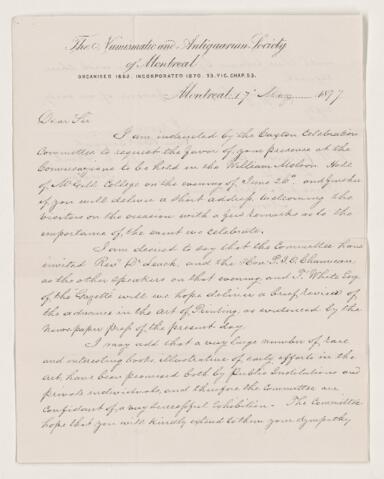 The Numismatic and Antiquarian Society
of Montreal.
ORGANISED 1862. INCORPORATED 1870. 33. VIC. CHAP. 53.
Montreal, 17 May 1877
Dear Sir
I am instructed by the Caxton Celebration
Committee to request the favor of your presence at the
Conversazione to be held in the William Molson Hall
of McGill College on the evening of June 26th, and further
if you will deliver a short address, welcoming the
visitors on the occasion with a few remarks as to the
importance of the event we celebrate.
I am desired to say that the Committee have
invited Revd Dr Leach, and the Hon. P. J. O. Chauveau
as the other speakers on that evening and T. White Esq
of the Gazette will we hope deliver a brief review of
the advance in the Art of Printing, as evidenced by the
newspaper press of the present day.
I may add that a very large number of rare
and interesting books illustrative of early efforts in the
art, have been promised both by Public Institutions and
private individuals, and therefore the Committee are
confidant of a very successful Exhibition. The Committee
hope that you will kindly extend to them your sympathy